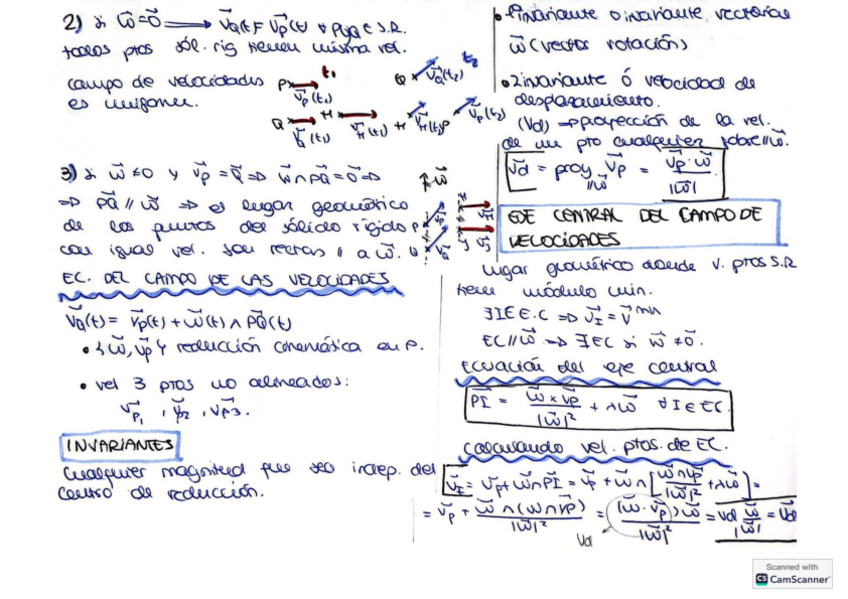 2) si ω⃗=0⃗ ⟹ v⃗Q(t)= v⃗P(t) ∀ P y Q ∈ S.R.
todos ptos sól. rig tienen misma vel.
campo de velocidades
es uniforme.
P t₁
v⃗P(t₁)
Q H
v⃗Q(t₁) v⃗H(t₁)
Q t₂
v⃗Q(t₂)
H v⃗H(t₂) P v⃗P(t₂)
3) si ω⃗ ≠0 y v⃗P = v⃗Q ⇒ ω⃗ ∧ PQ⃗ = 0⃗ ⇒
⇒ PQ⃗ // ω⃗ ⇒ el lugar geométrico
de los puntos del sólido rígido
con igual vel. son rectas // a ω⃗.
ω⃗
P v⃗P
Q v⃗Q
H v⃗H
J v⃗J
EC. DEL CAMPO DE LAS VELOCIDADES
v⃗Q(t) = v⃗P(t) + ω⃗(t) ∧ PQ⃗(t)
• ω⃗, v⃗P y reducción cinemática en P.
• vel 3 ptos no alineados:
v⃗P1, v⃗P2, v⃗P3.
INVARIANTES
Cualquier magnitud que sea indep. del
centro de reducción.
• 1invariante o invariante vectorial
ω⃗ (vector rotación)
• 2invariante ó velocidad de
desplazamiento.
(Vd) ⇒ proyección de la vel.
de un pto cualquier sobre // ω⃗.
v⃗d = proy//ω⃗ v⃗P = v⃗P · ω⃗ / |ω⃗|
EJE CENTRAL DEL CAMPO DE
VELOCIDADES
lugar geométrico donde v. ptos S.R
tiene módulo min.
∃ I ∈ E.C ⇒ v⃗I = v⃗ min
EC // ω⃗ ⇒ ∃ EC si ω⃗ ≠ 0⃗.
Ecuación del eje central
PI⃗ = ω⃗ × v⃗P / |ω⃗|² + λω⃗ ∀ I ∈ EC.
Calculando vel. ptos. de EC.
v⃗I = v⃗P + ω⃗ ∧ PI⃗ = v⃗P + ω⃗ ∧ [ω⃗ ∧ v⃗P / |ω⃗|² + λω⃗] =
= v⃗P + ω⃗ ∧ (ω⃗ ∧ v⃗P) / |ω⃗|² = (ω⃗ · v⃗P) ω⃗ / |ω⃗|² = vd ω⃗ / |ω⃗| = v⃗d
Vd
Scanned with
CS CamScanner